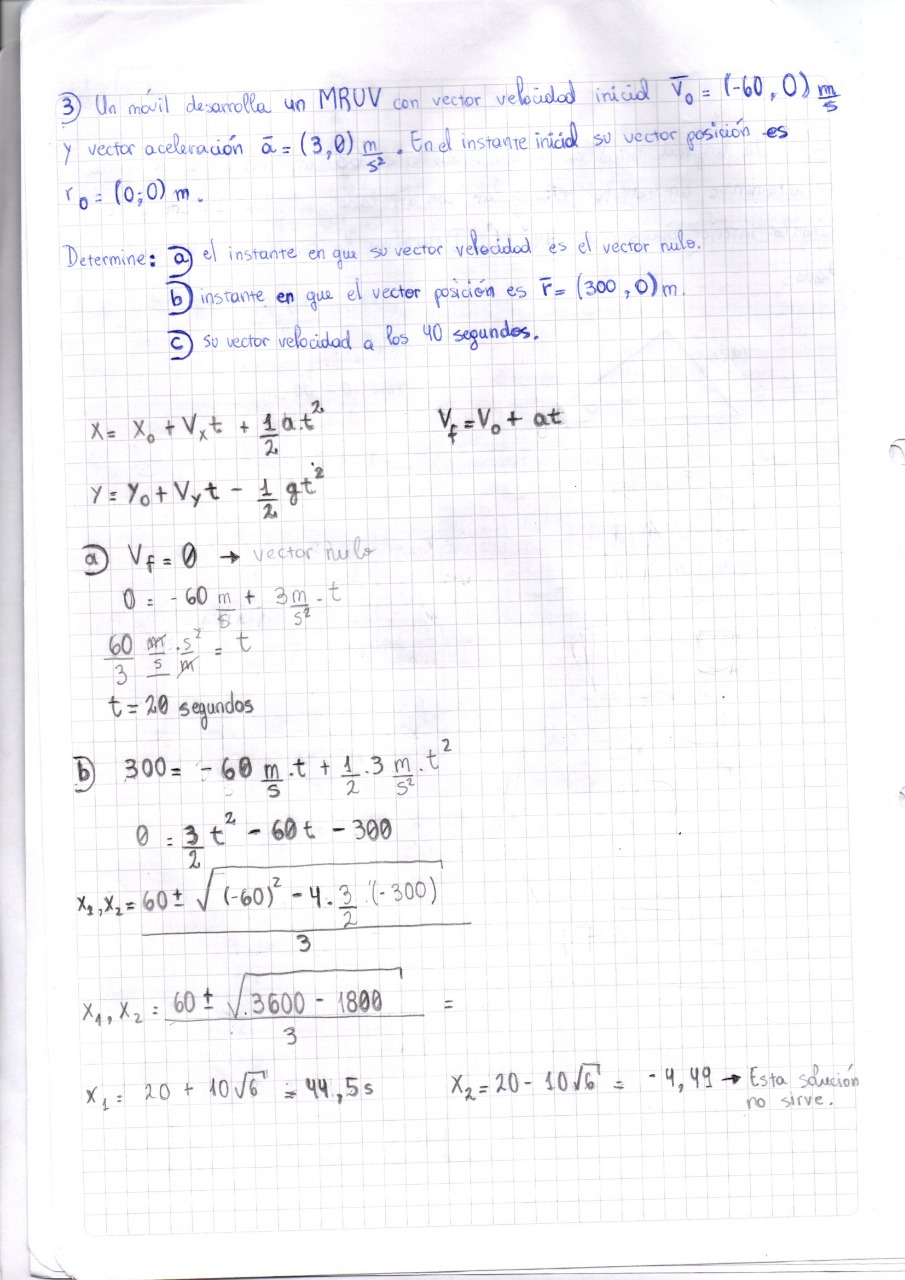 3) Un móvil desarrolla un MRUV con vector velocidad inicial V̄₀ = (-60, 0) m/s
y vector aceleración ā = (3,0) m/s². En el instante inicial su vector posición es
r₀ = (0;0) m.
Determine: a) el instante en que su vector velocidad es el vector nulo.
b) instante en que el vector posición es r̄ = (300, 0) m.
c) su vector velocidad a los 40 segundos.
X = X₀ + Vₓt + 1/2 at² V_f = V₀ + at
Y = Y₀ + V_y t - 1/2 gt²
a) V_f = 0 → vector nulo
0 = -60 m/s + 3 m/s² . t
60/3 m/s . s²/m = t
t = 20 segundos
b) 300 = -60 m/s . t + 1/2 . 3 m/s² . t²
0 = 3/2 t² - 60t - 300
x₁, x₂ = (60 ± √((-60)² - 4 . 3/2 . (-300))) / 3
x₁, x₂ = (60 ± √(3600 - 1800)) / 3 =
x₁ = 20 + 10√6 = 44,5 s x₂ = 20 - 10√6 = -4,49 → Esta solución
no sirve.